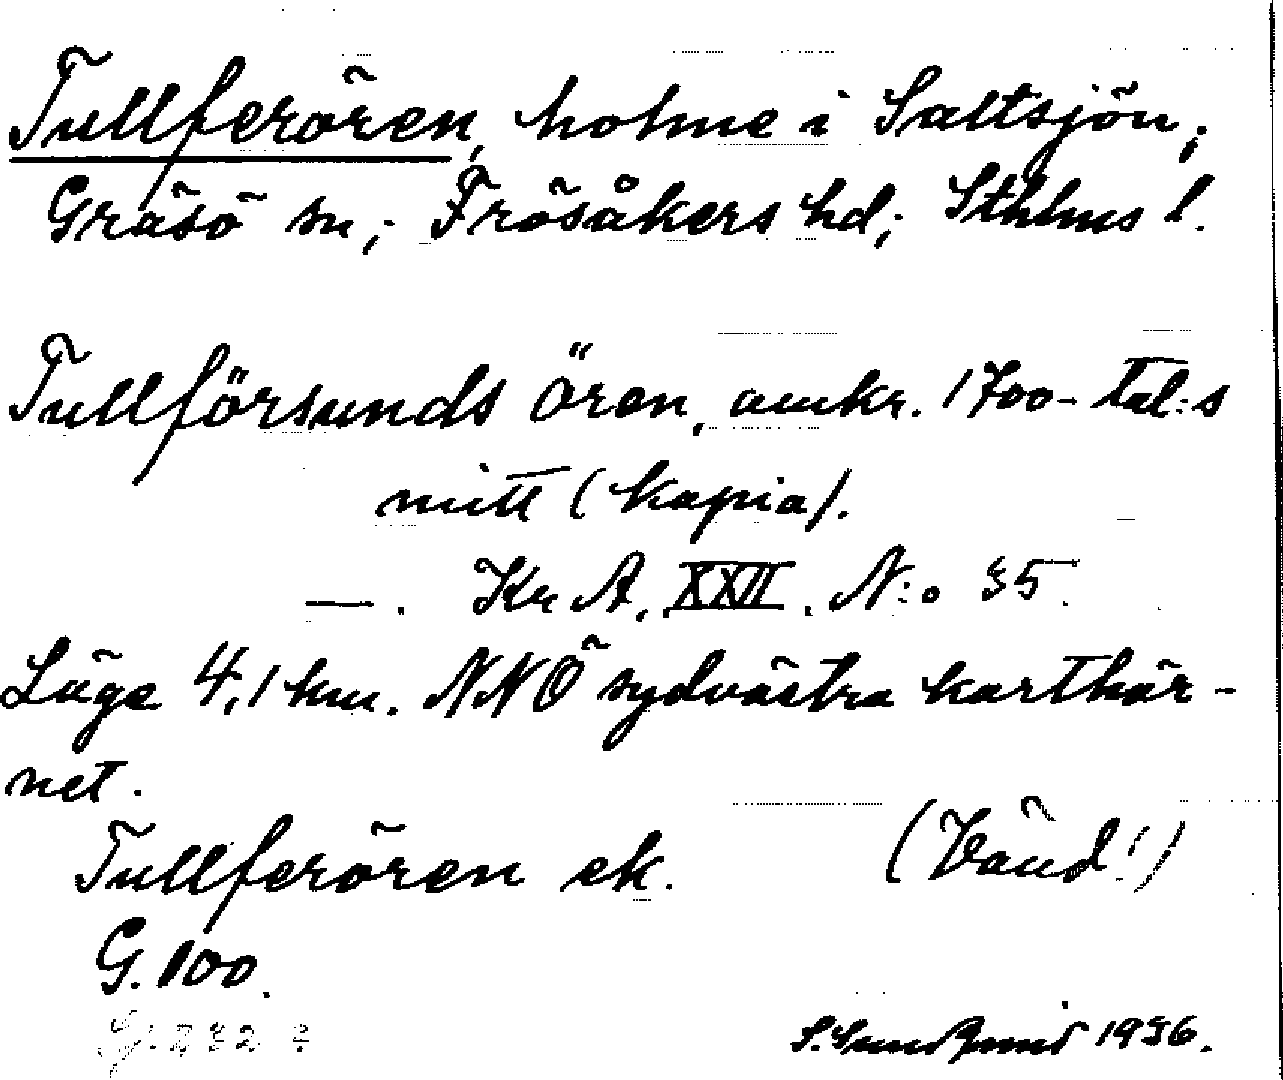 Tullferören, holme i Saltsjön;
Gräsö sn; Frösåkers hd; Sthlms l.
Tullförsunds ören, omkr. 1700-tal:s
mitt (kopia).
—. Kr A. XXII. N:o 35.
Läge 4,1 km. NNÖ sydvästra karthör-
net.
Tullferören ek. (Vänd!)
G. 100.
1936.